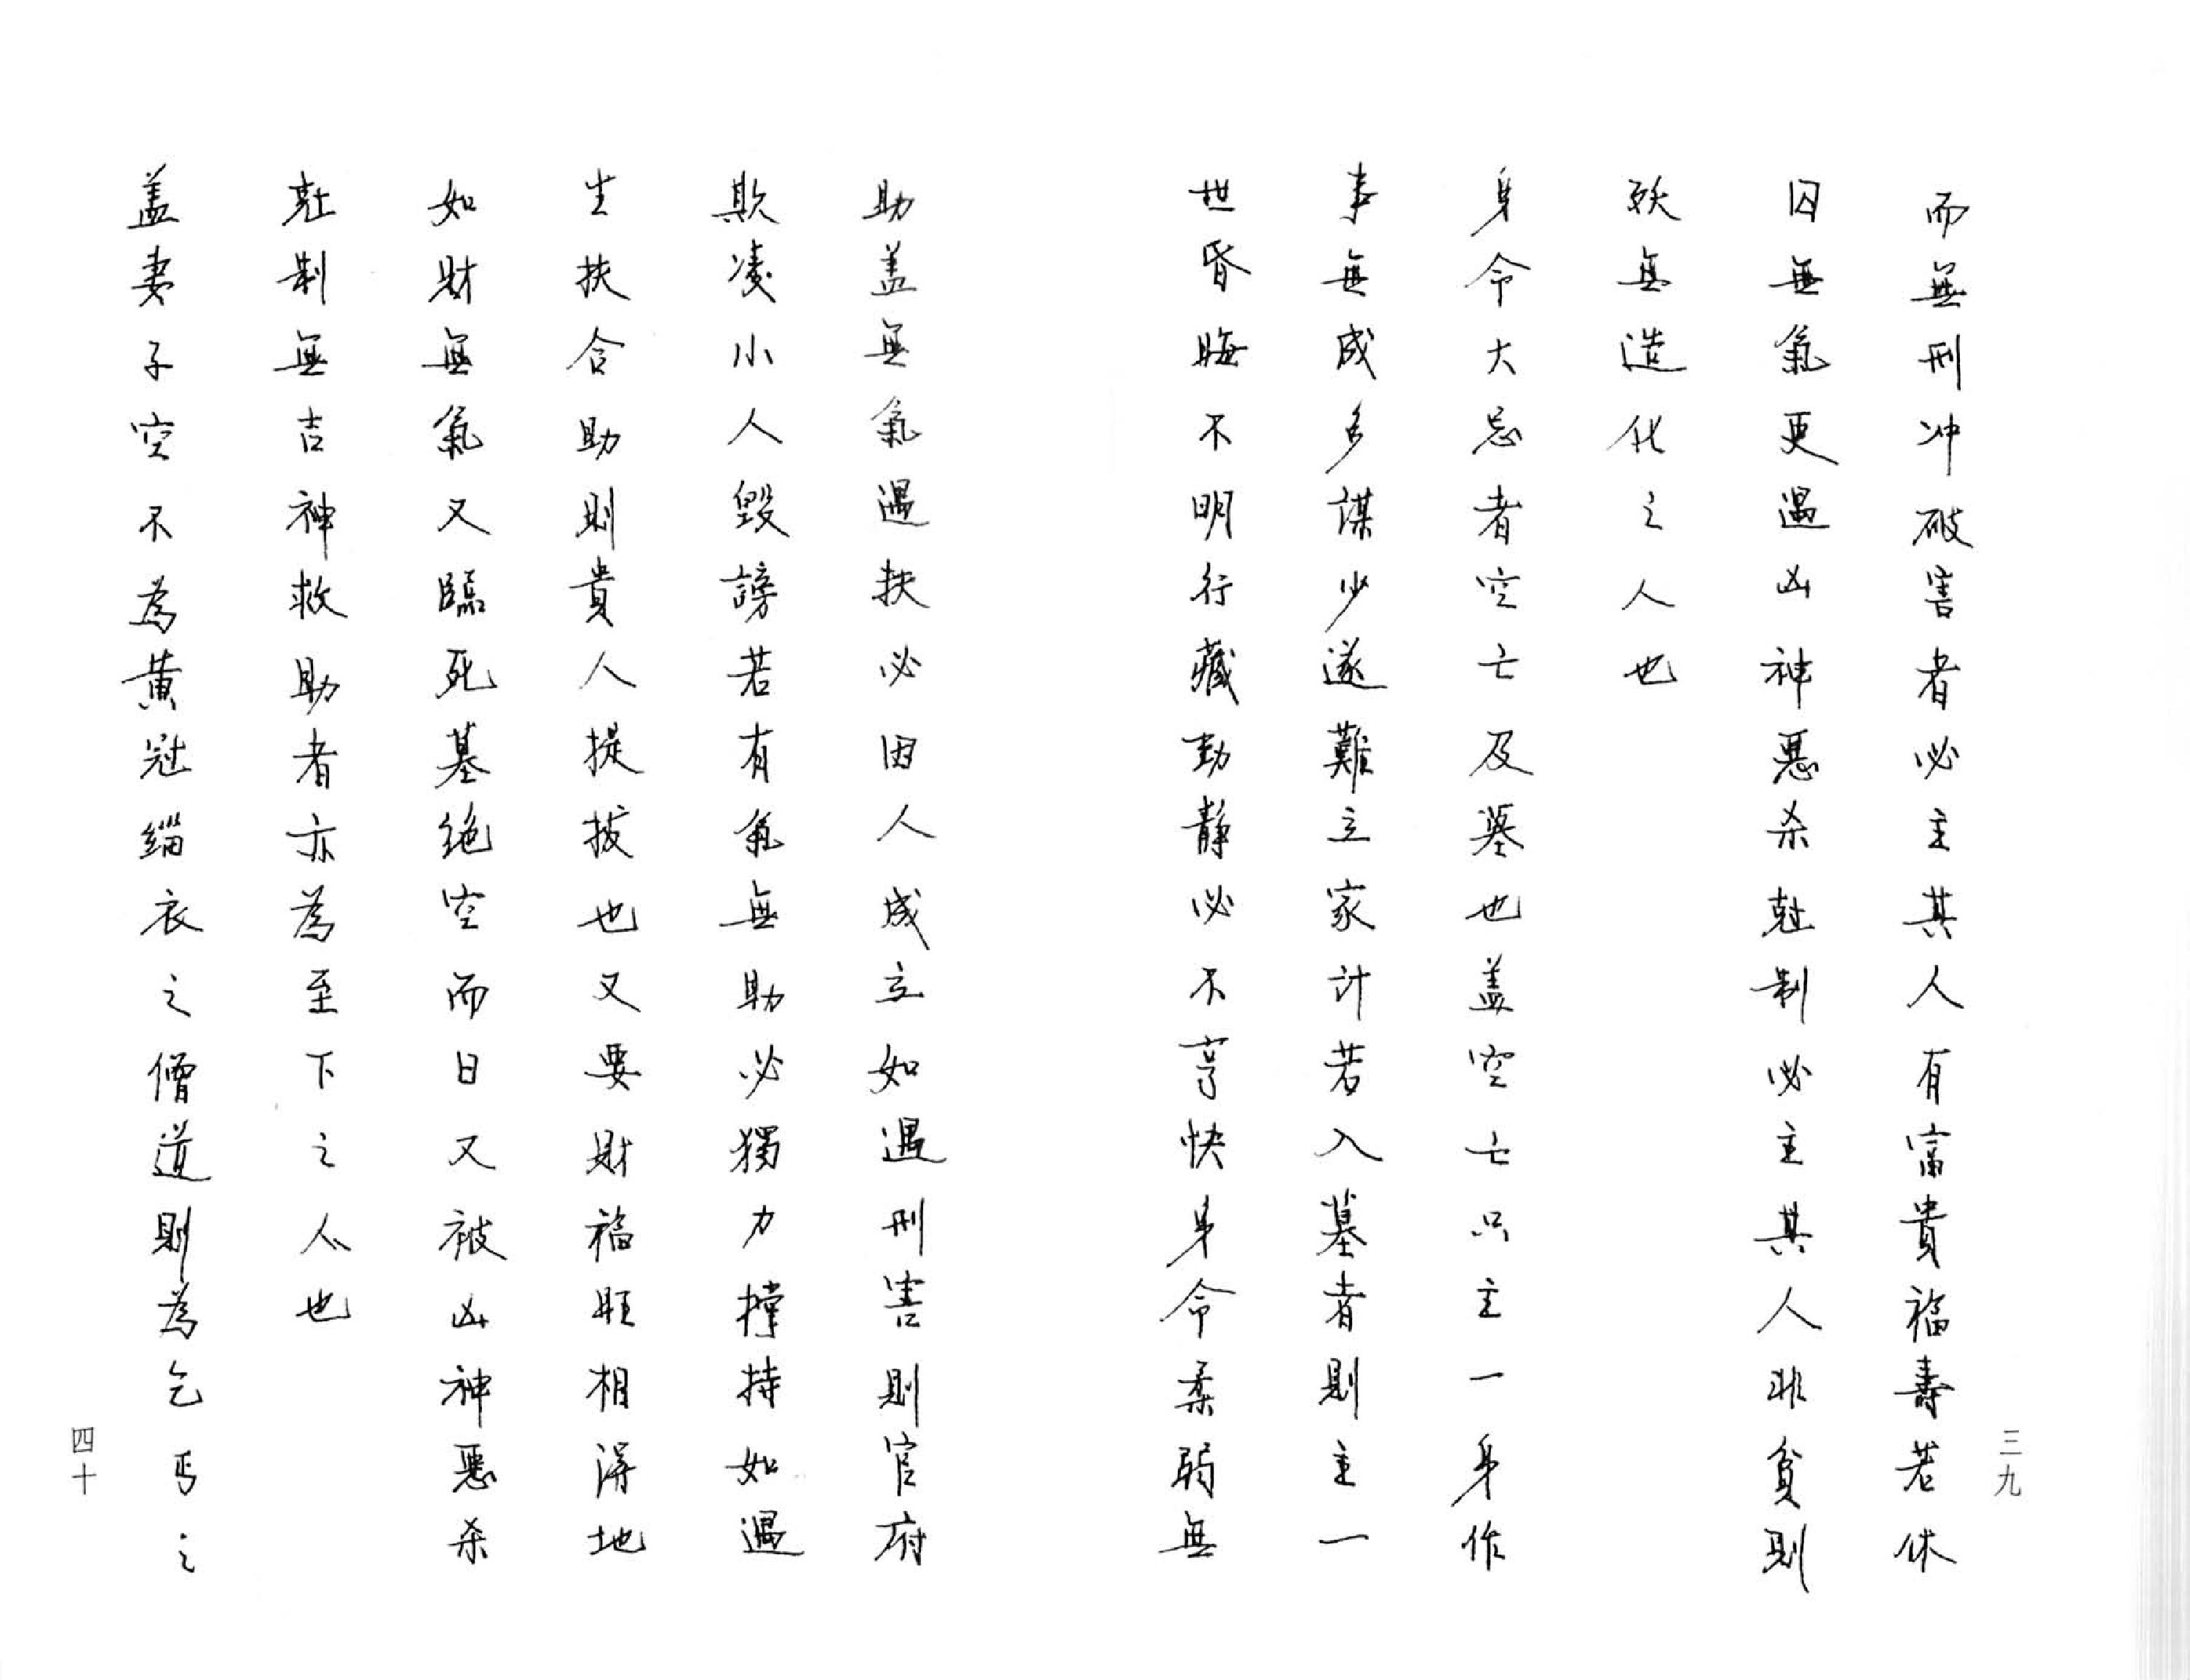 而無刑冲破害者必主其人有富貴福壽若休
囚無氣更遇凶神惡杀尅制必主其人非貧則
殀無造化之人也
身命大忌者空亡及墓也盖空亡只主一身作
事無成多謀少遂難立家計若入墓者則主一
世昏晦不明行藏動静必不亨快身命柔弱無
三九
助盖無氣遇扶必因人成立如遇刑害則官府
欺凌小人毀謗若有氣無助必獨力撑持如遇
生扶合助則貴人提拔也又要財福旺相得地
如財無氣又臨死墓绝空而日又被凶神惡杀
尅制無吉神救助者亦為至下之人也
盖妻子空不為黄冠緇衣之僧道則為乞丐之
四十